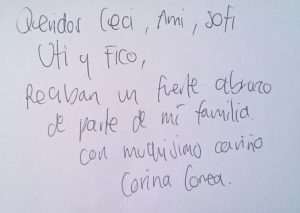 Queridos Ceci, Ami, Sofi
Uti y Fico,
Reciban un fuerte abrazo
de parte de mi familia.
con muquisimo cariño
Corina Conea.